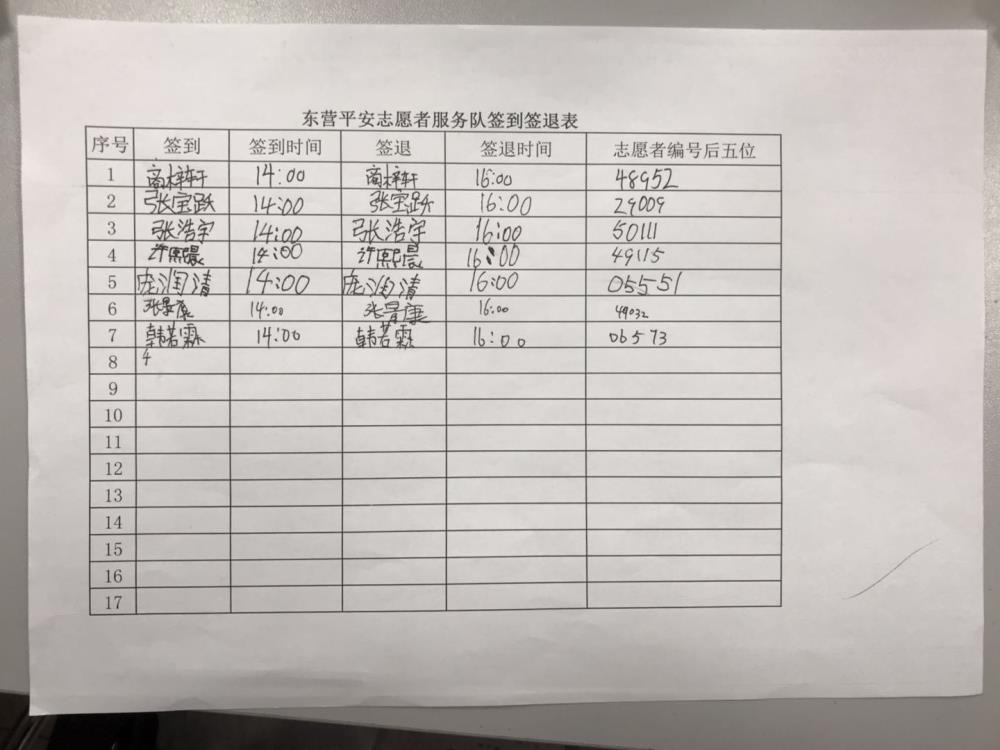 东营平安志愿者服务队签到签退表
序号 签到 签到时间 签退 签退时间 志愿者编号后五位
1 商梓轩 14:00 商梓轩 16:00 48952
2 张宝跃 14:00 张宝跃 16:00 29009
3 张浩宇 14:00 张浩宇 16:00 50111
4 许熙晨 14:00 许熙晨 16:00 49115
5 庞润清 14:00 庞润清 16:00 05551
6 张景康 14:00 张景康 16:00 49032
7 韩若霖 14:00 韩若霖 16:00 06573
8
9
10
11
12
13
14
15
16
17